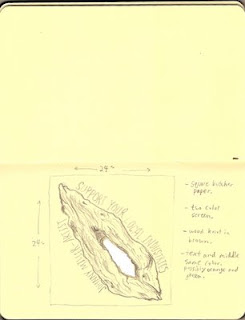 24"
SUPPORT YOUR LOCAL
24"
- square butcher
paper.
- two color
screen.
- wood knot in
brown.
- text and middle
same color.
possibly orange and
green.